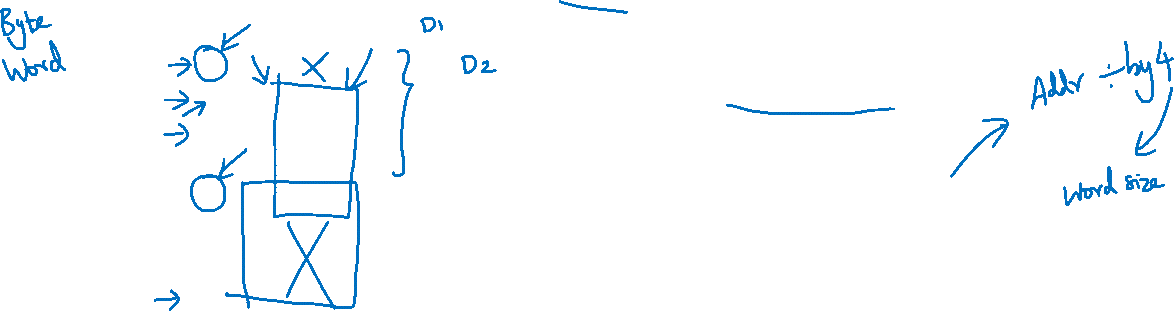 Byte
Word
X
D1
D2
Addr ÷ by 4
word size